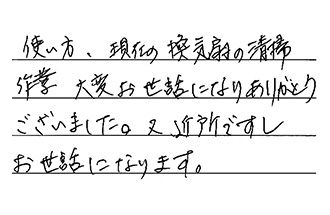 使い方、現在の換気扇の清掃
作業 大変お世話になりありがとう
ございました。又近所ですし
お世話になります。